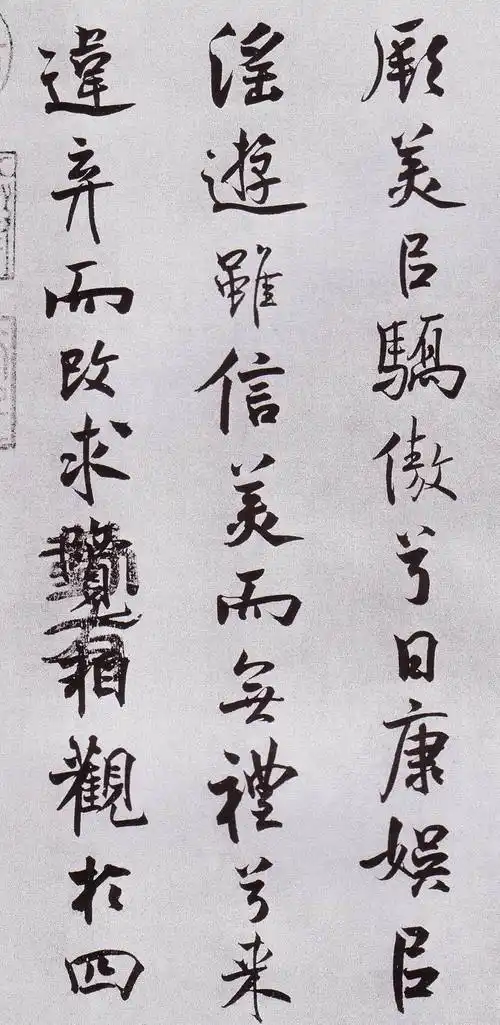 厥美㠯驕傲兮日康娛㠯
淫遊雖信美而無禮兮来
違弃而改求覽相觀於四